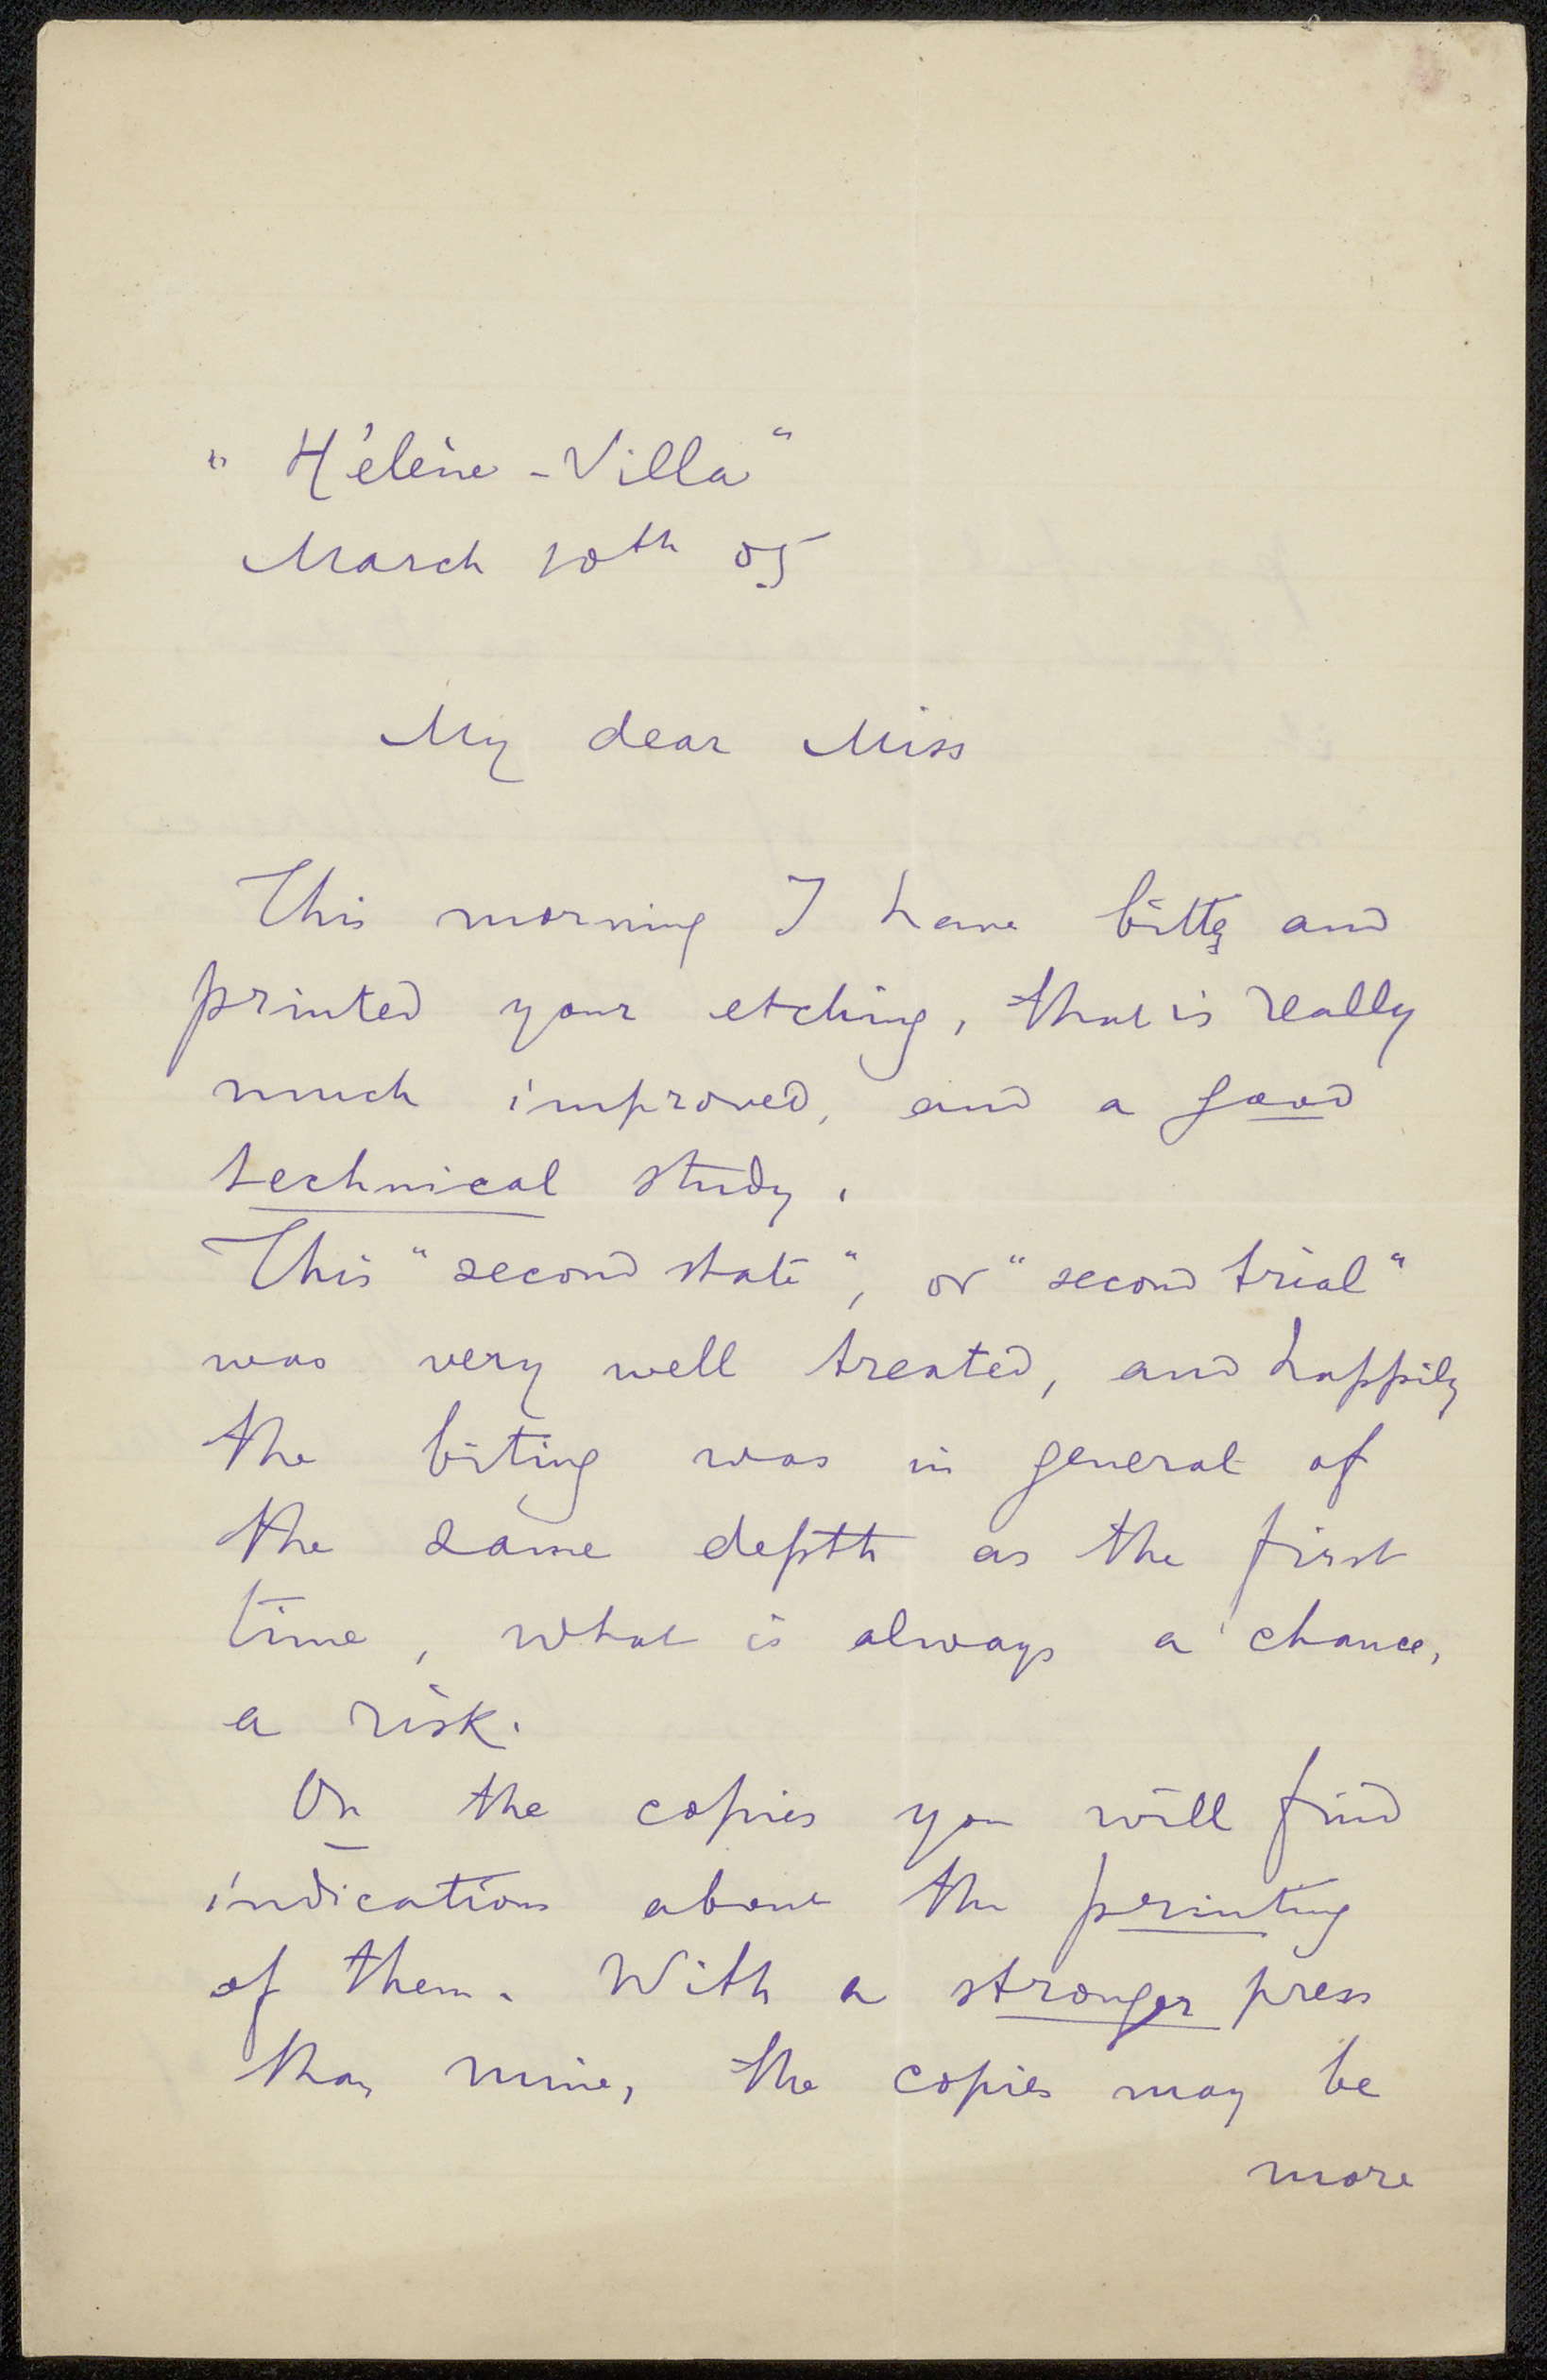 " Hélène - Villa "
March 10th 05
My dear Miss
This morning I have and
printed your etching, that is really
much improved, and a good
technical study.
This " second state ", or " second trial "
was very well treated, and happily
the biting was in general of
the same depth as the first
time, what is always a chance,
a risk.
On the copies you will find
indications about the printing
of them. With a stronger press
than mine, the copies may be
more